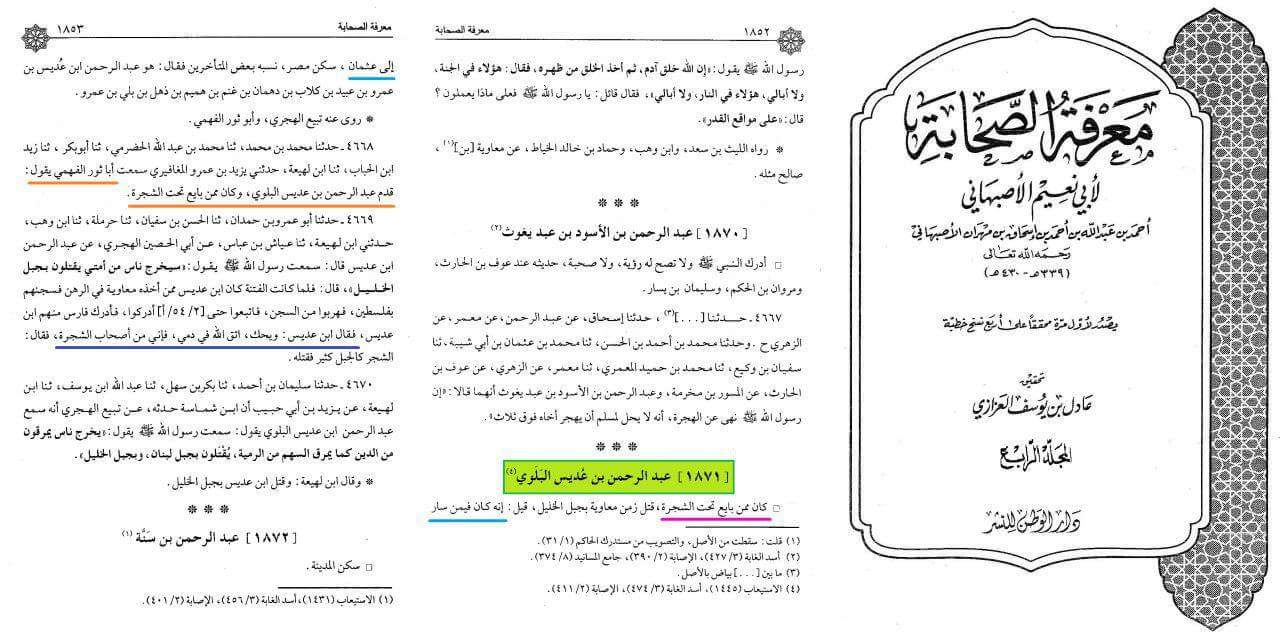 معرفة الصحابة
لأبي نعيم الأصبهاني
أحمد بن عبد الله بن أحمد بن إسحاق بن مهران الأصبهاني
رحمه الله تعالى
(٣٣٩هـ - ٤٣٠هـ)
يصدر لأول مرة محققاً على أربع نسخ خطية
تحقيق
عادل بن يوسف العزازي
المجلد الرابع
دار الوطن للنشر
١٨٥٢
معرفة الصحابة
رسول الله ﷺ يقول: «إن الله خلق آدم، ثم أخذ الخلق من ظهره، فقال: هؤلاء في الجنة،
ولا أبالي، هؤلاء في النار، ولا أبالي»، فقال قائل: يا رسول الله ﷺ فعلى ماذا يعملون؟
قال: «على مواقع القدر».
* رواه الليث بن سعد، وابن وهب، وحماد بن خالد الخياط، عن معاوية [بن](١)،
صالح مثله.
* * *
[١٨٧٠] عبد الرحمن بن الأسود بن عبد يغوث(٢)
□ أدرك النبي ﷺ ولا تصح له رؤية، ولا صحبة، حديثه عند عوف بن الحارث،
ومروان بن الحكم، وسليمان بن يسار.
٤٦٦٧ ـ حـدثنا [...](٣)، حدثنا إسحاق، عن عبد الرحمن، عن معمر، عن
الزهري ح. وحدثنا محمد بن أحمد بن الحسن، ثنا محمد بن عثمان بن أبي شيبة، ثنا
سفيان بن وكيع، ثنا محمد بن حميد المعمري، ثنا معمر، عن الزهري، عن عوف بن
الحارث، عن المسور بن مخرمة، وعبد الرحمن بن الأسود بن عبد يغوث أنهما قالا: «إن
رسول الله ﷺ نهى عن الهجرة، أنه لا يحل لمسلم أن يهجر أخاه فوق ثلاث».
* * *
[١٨٧١] عبد الرحمن بن عُديس البَلَوي(٤)
□ كان ممن بايع تحت الشجرة، قتل زمن معاوية بجبل الخليل، قيل: إنه كان فيمن سار
(١) قلت: سقطت من الأصل، والتصويب من مستدرك الحاكم (٣١/١).
(٢) أسد الغابة (٤٢٧/٣)، الإصابة (٣٩٠/٢)، جامع المسانيد (٣٧٤/٨).
(٣) ما بين [...] بياض بالأصل.
(٤) الاستيعاب (١٤٤٥)، أسد الغابة (٤٧٤/٣)، الإصابة (٤١١/٢).
معرفة الصحابة
١٨٥٣
إلى عثمان، سكن مصر، نسبه بعض المتأخرين فقال: هو عبد الرحمن ابن عُديس بن
عمرو بن عبيد بن كلاب بن دهمان بن غنم بن هميم بن ذهل بن بلي بن عمرو.
* روى عنه تبيع الهجري، وأبو ثور الفهمي.
٤٦٦٨ ـ حدثنا محمد بن محمد، ثنا محمد بن عبد الله الحضرمي، ثنا أبوبكر، ثنا زيد
ابن الحباب، ثنا ابن لهيعة، حدثني يزيد بن عمرو المغافيري سمعت أبا ثور الفهمي يقول:
قدم عبد الرحمن بن عديس البلوي، وكان ممن بايع تحت الشجرة.
٤٦٦٩ ـ حدثنا أبو عمرو بن حمدان، ثنا الحسن بن سفيان، ثنا حرملة، ثنا ابن وهب،
حدثني ابن لهيعة، ثنا عياش بن عباس، عن أبي الحصين الهجري، عن عبد الرحمن
ابن عديس قال: سمعت رسول الله ﷺ يقول: «سيخرج ناس من أمتي يقتلون بجبل
الخليل»، قال: فلما كانت الفتنة كان ابن عديس ممن أخذه معاوية في الرهن فسجنهم
بفلسطين، فهربوا من السجن، فاتبعوا حتى [٢/٥٤/أ] أدركوا، فأدرك فارس منهم ابن
عديس، فقال ابن عديس: ويحك، اتق الله في دمي، فإني من أصحاب الشجرة، فقال:
الشجر كالجبل كثير فقتله.
٤٦٧٠ ـ حدثنا سليمان بن أحمد، ثنا بكر بن سهل، ثنا عبد الله ابن يوسف، ثنا ابن
لهيعة، عن يزيد بن أبي حبيب أن ابن شماسة حدثه، عن تبيع الهجري أنه سمع
عبد الرحمن ابن عديس البلوي يقول: سمعت رسول الله ﷺ يقول: «يخرج ناس يمرقون
من الدين كما يمرق السهم من الرمية، يُقْتَلون بجبل لبنان، وبجبل الخليل».
* وقال ابن لهيعة: وقتل ابن عديس بجبل الخليل.
* * *
[١٨٧٢] عبد الرحمن بن سَنَّة(١)
□ سكن المدينة.
(١) الاستيعاب (١٤٣١)، أسد الغابة (٤٥٦/٣)، الإصابة (٤٠١/٢).